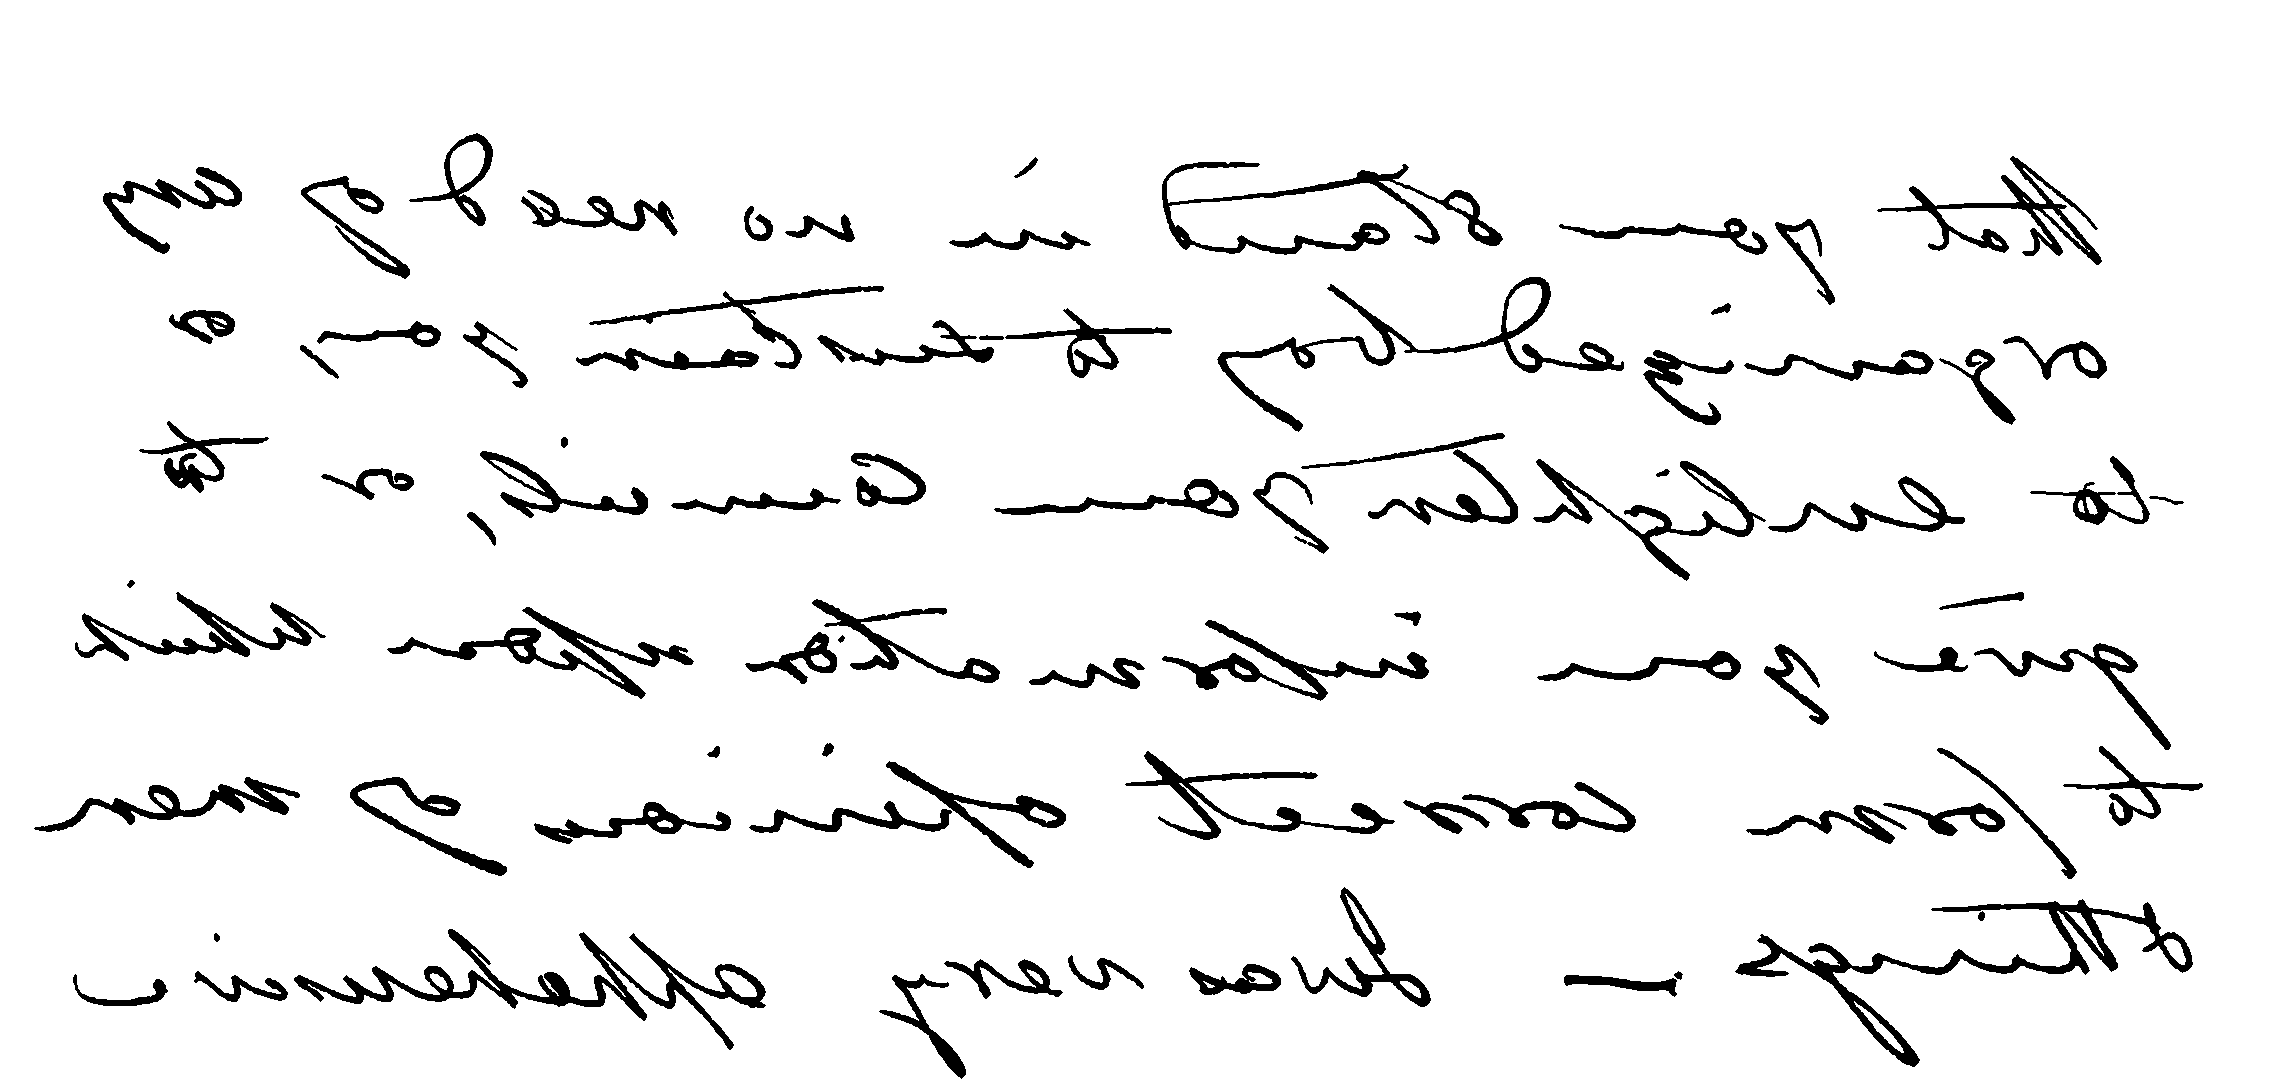 that you stand in no need of any
organized body to you, or
to enlighten your Council, or to
give you information upon which
to form correct opinions of men
& things — I was very apprehensive